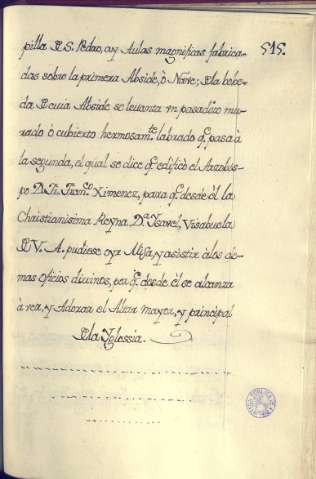 pilla de S. Pedro, ay Aulas magnificas fabrica-
515.
das sobre la primera Abside, ò Nave; de la bobe-
da de cuia Abside se levanta un pasadizo mu-
rado ò cubierto hermosamte. labrado q. pasa à
la segunda, el qual se dice q. edificò el Arzobis-
po D. Fr. Franco. Ximenez, para q. desde èl la
Christianisima Reyna Da. Isavel, Visabuela
de V. A. pudiese oyr Misa, y asistir à los de-
mas oficios divinos, porq. desde èl se alcanza
à ver, y Adorar el Altar mayor, y principal
de la Yglessia.